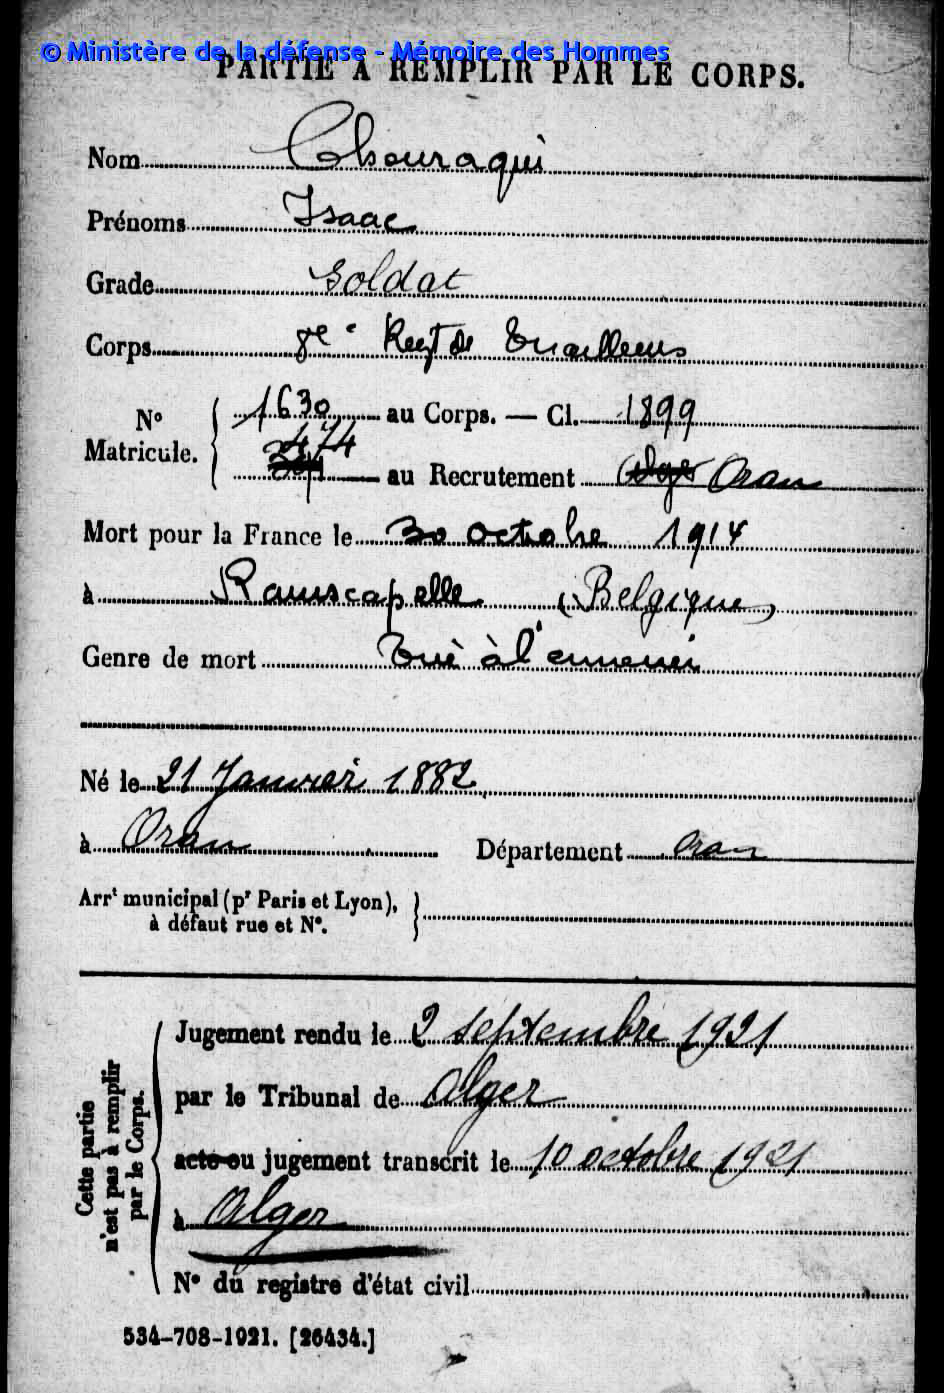 © Ministère de la défense - Mémoire des Hommes
PARTIE A REMPLIR PAR LE CORPS.
Nom Chouraqui
Prénoms Isaac
Grade Soldat
Corps 8e Regt de Tirailleurs
N° Matricule. 1630 au Corps. — Cl. 1899
474 au Recrutement Alger Oran
Mort pour la France le 30 octobre 1914
à Ramscapelle (Belgique)
Genre de mort Tué à l'ennemi
Né le 21 Janvier 1882
à Oran Département Oran
Arrt municipal (pr Paris et Lyon),
à défaut rue et N°.
Cette partie
n'est pas à remplir
par le Corps.
Jugement rendu le 2 septembre 1921
par le Tribunal de Alger
acte ou jugement transcrit le 10 octobre 1921
à Alger
N° du registre d'état civil
534-708-1921. [26434.]